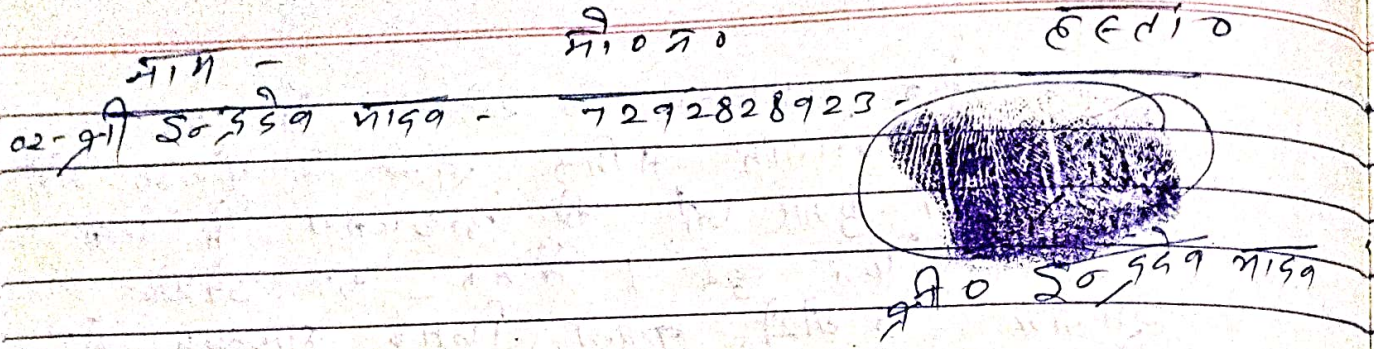 नाम - मो० न० हस्ता०
02- श्री इन्द्रदेव यादव - 7292828923 -
श्री० इन्द्रदेव यादव